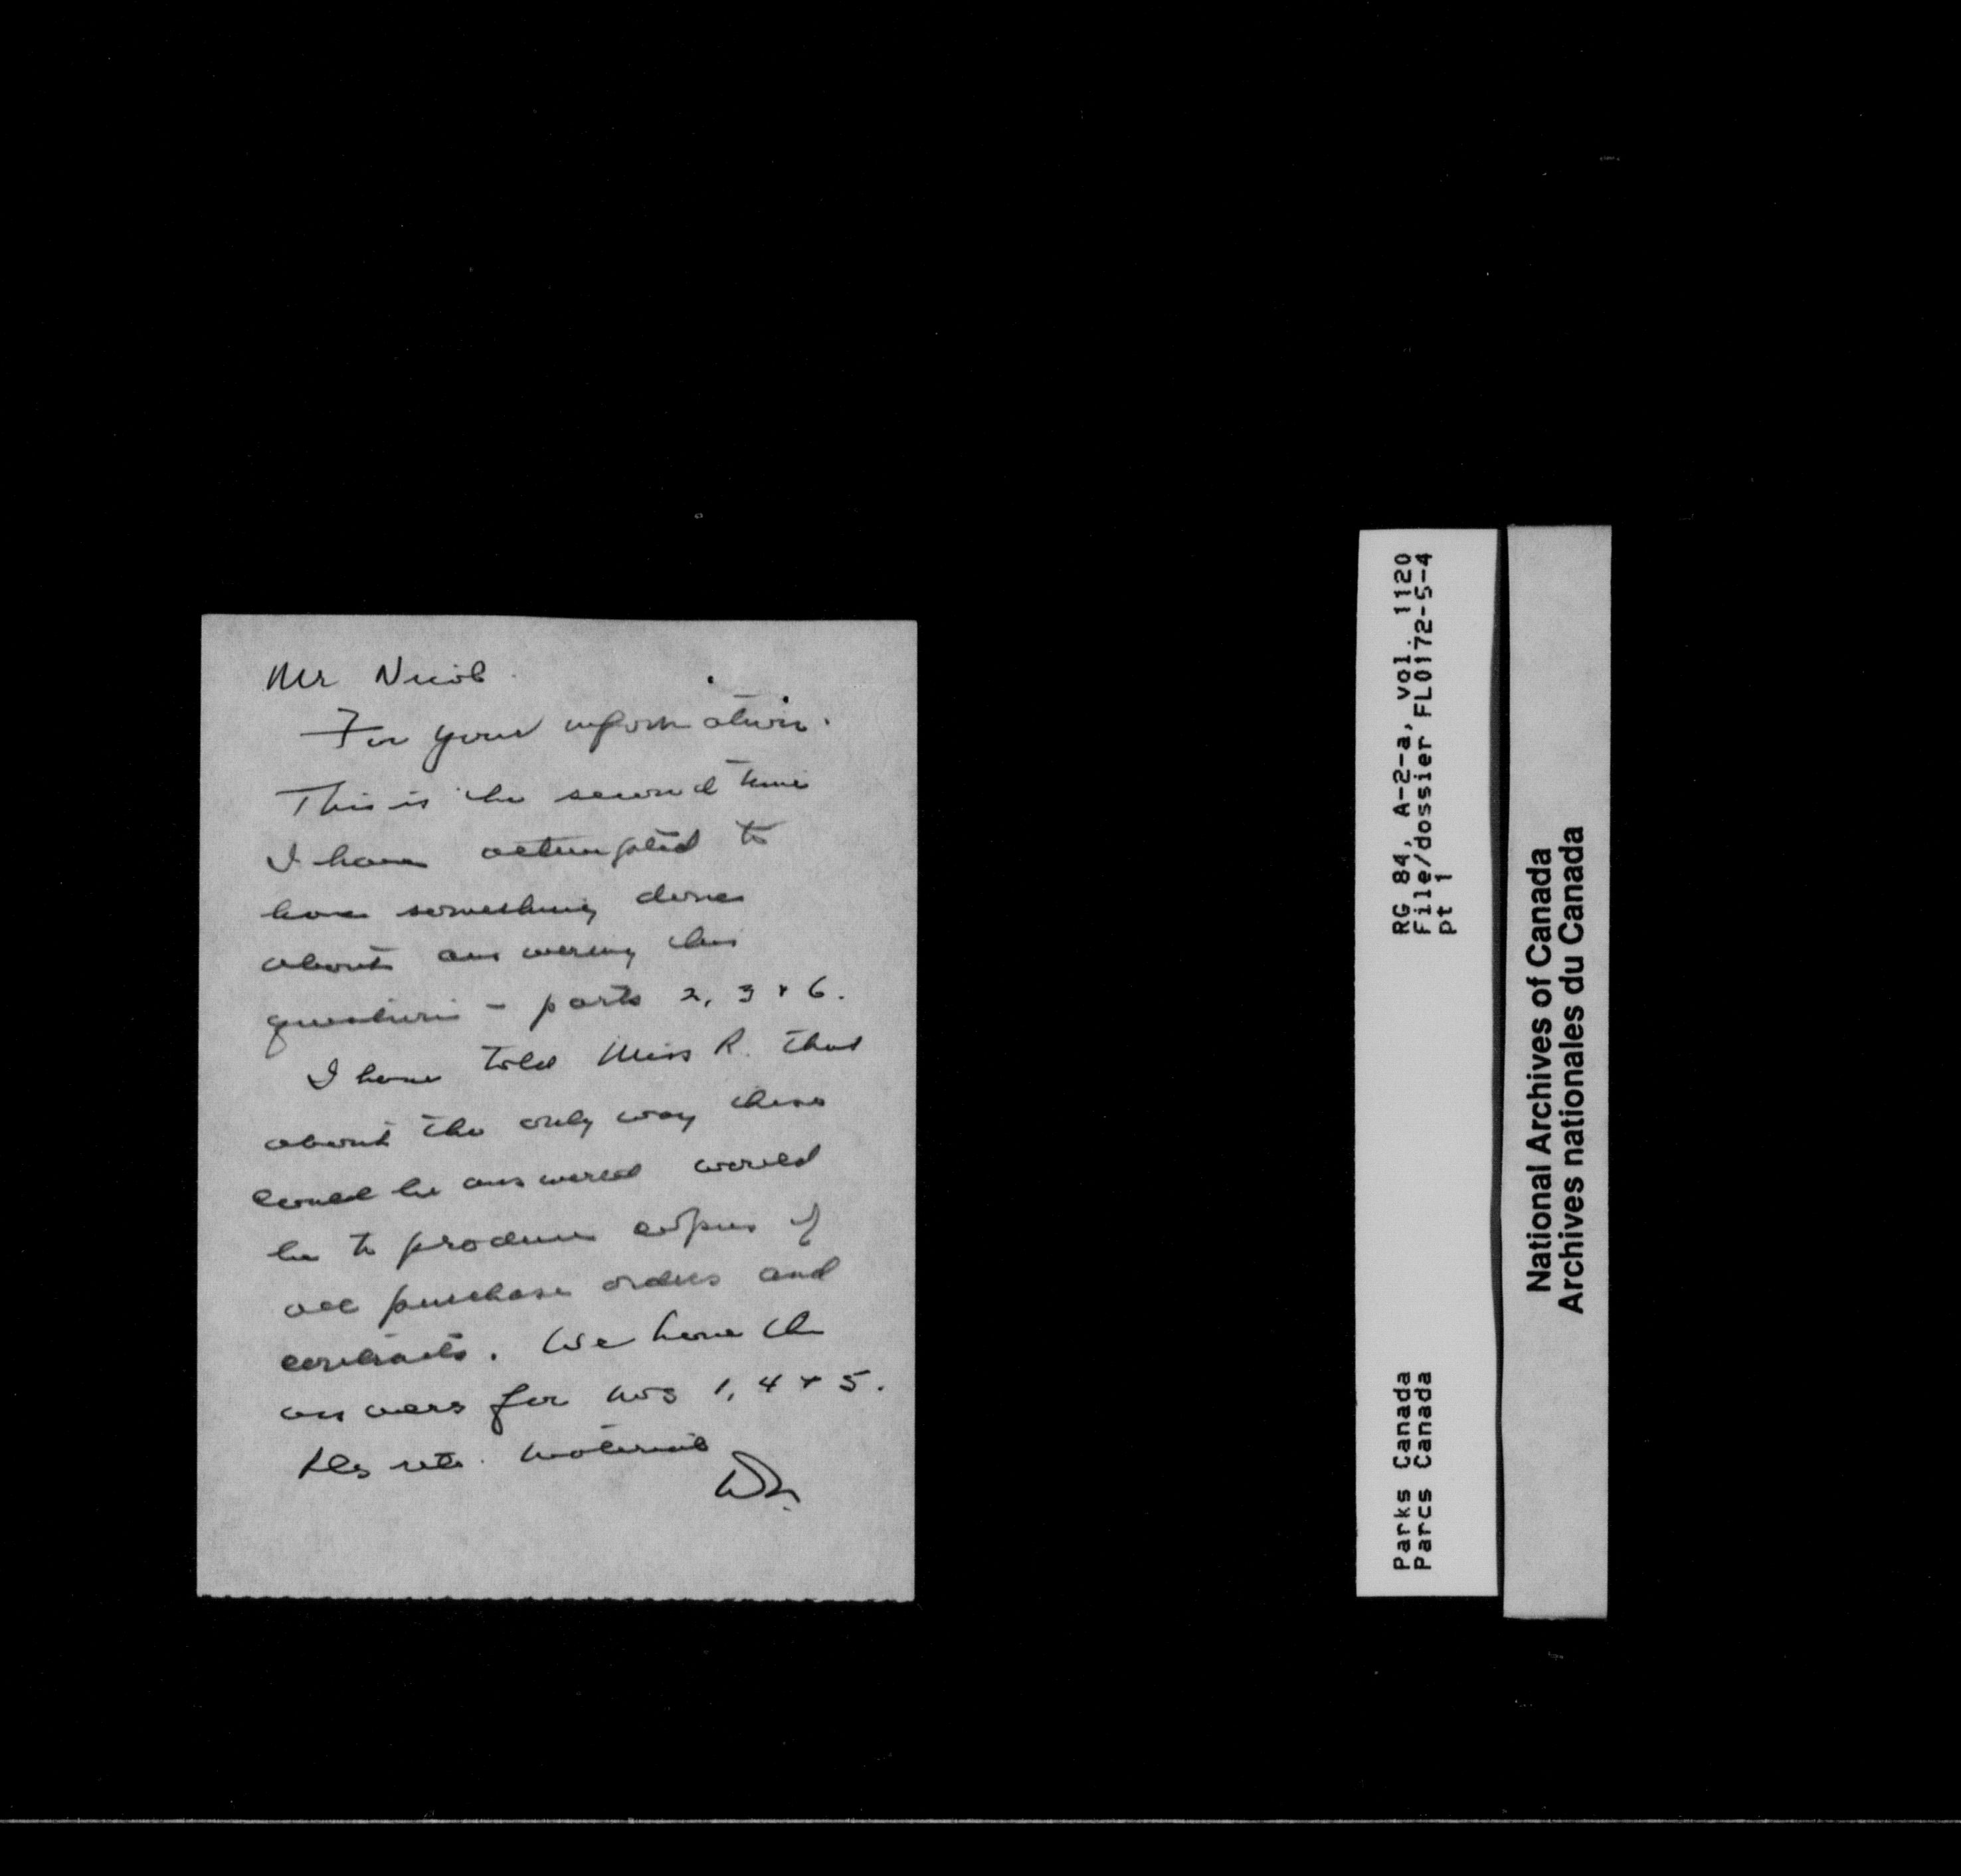 Mr Nicol
For your information.
This is the second time
I have attempted to
have something done
about answering this
question - parts 2, 3 + 6.
I have told Miss R. that
about the only way these
could be answered would
be to produce copies of
all purchase orders and
contracts. We have the
answers for nos 1, 4 + 5.
Pls rtn. material
RG 84, A-2-a, vol. 1120
File/dossier FL0172-5-4
pt 1
Parks Canada
Parcs Canada
National Archives of Canada
Archives nationales du Canada